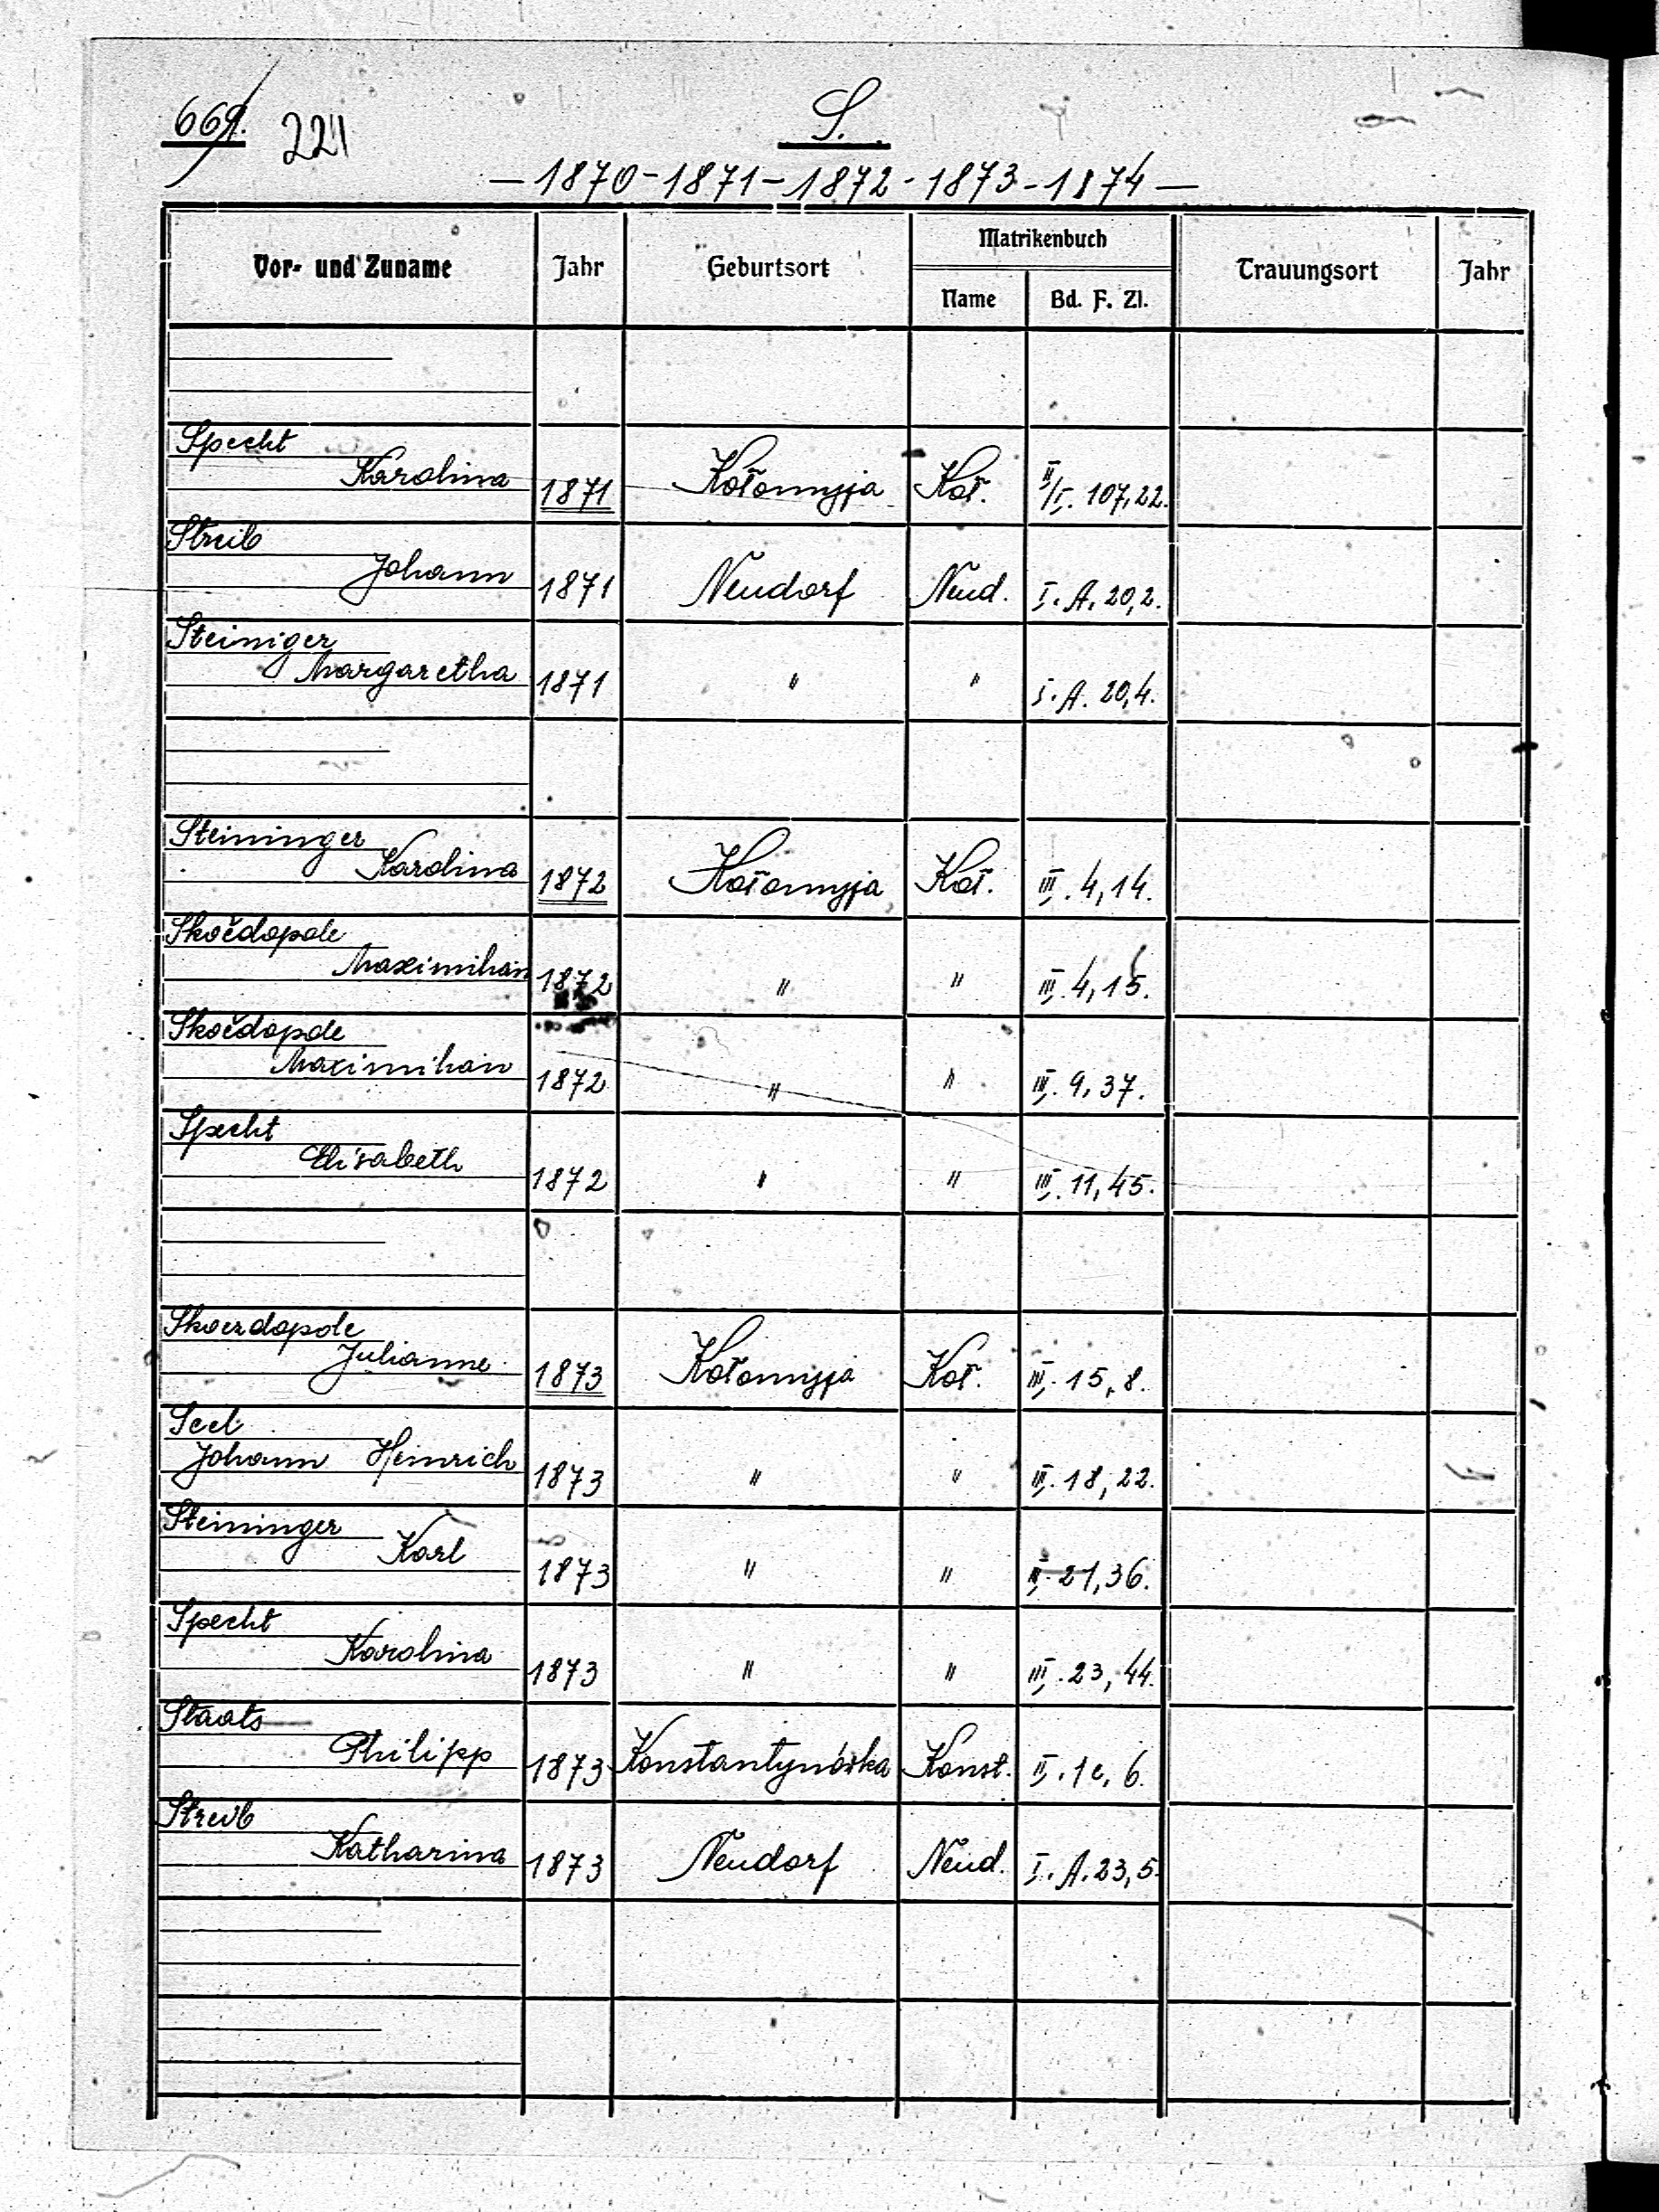 669. 221
S.
— 1870 - 1871 - 1872 - 1873 - 1874 —
Vor- und Zuname Jahr Geburtsort Matrikenbuch Trauungsort Jahr
Name Bd. F. Zl.
Specht
Karolina 1871 Kołomyja Koł. II/I. 107,22.
Streib
Johann 1871 Neudorf Neud. I. A. 20,2.
Steiniger
Margaretha 1871 " " I. A. 20,4.
Steininger
Karolina 1872 Kołomyja Koł. III. 4,14.
Skočdopole
Maximilian 1872 " " III. 4,15.
Skočdopole
Maximilian 1872 " " III. 9,37.
Specht
Elisabeth 1872 " " III. 11,45.
Skoczdopole
Julianne 1873 Kołomyja Koł. III. 15,8.
Seel
Johann Heinrich 1873 " " III. 18,22.
Steininger
Karl 1873 " " III. 21,36.
Specht
Karolina 1873 " " III. 23,44.
Staats
Philipp 1873 Konstantynówka Konst. II. 1c, 6.
Streib
Katharina 1873 Neudorf Neud. I. A. 23,5.